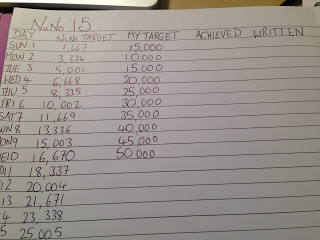 NaNo '15
DAY NaNo TARGET MY TARGET ACHIEVED WRITTEN
SUN 1 1,667 15,000
MON 2 3,334 10,000
TUE 3 5,001 15,000
WED 4 6,668 20,000
THU 5 8,335 25,000
FRI 6 10,002 30,000
SAT7 11,669 35,000
UN8 13,336 40,000
ON9 15,003 45,000
E10 16,670 50,000
D11 18,337
12 20,004
13 21,671
4 23,338
5 25,005